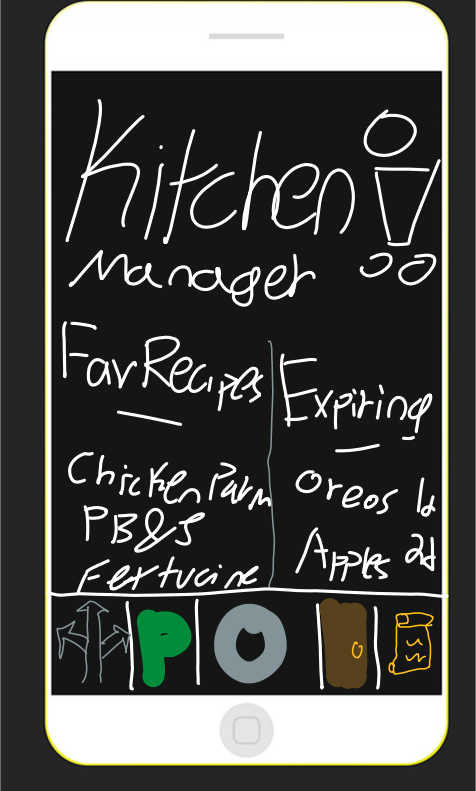 Kitchen
Manager
Fav Recipes
Chicken Parm
PB&J
Fettucine
Expiring
Oreos 1d
Apples 2d
P